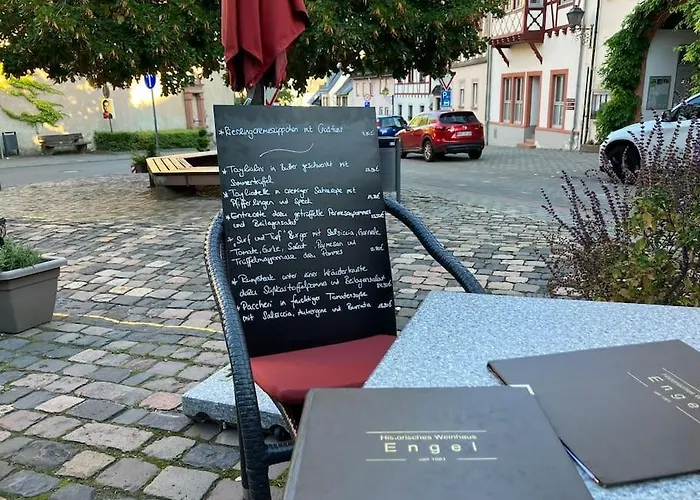 Rieslingcremesüppchen mit Gästhaut
Tagliolini in Butter geschwenkt mit
Sommertrüffel
Tagliatelle in cremiger Sahnesoße mit
Pfifferlingen und Speck
Entrecote dazu getrüffelte Parmesanpommes
und Beilagensalat
"Surf und Turf" Burger mit Salsiccia, Garnele,
Tomate, Gurke, Salat, Parmesan und
Trüffelmayonnaise dazu Pommes
Rumpsteak unter einer Kräuterkruste
dazu Süßkartoffelpommes und Beilagensalat
Paccheri in fruchtiger Tomatensoße
mit Salsiccia, Aubergine und Burrata
Historisches Weinhaus
Engel
seit 1981
Engel